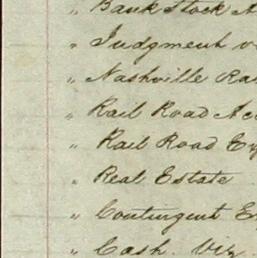 " Bank Stock A
" Judgment v
" Nashville Rai
" Rail Road Acc
" Rail Road Ex
" Real Estate
" Contingent E
" Cash. Viz